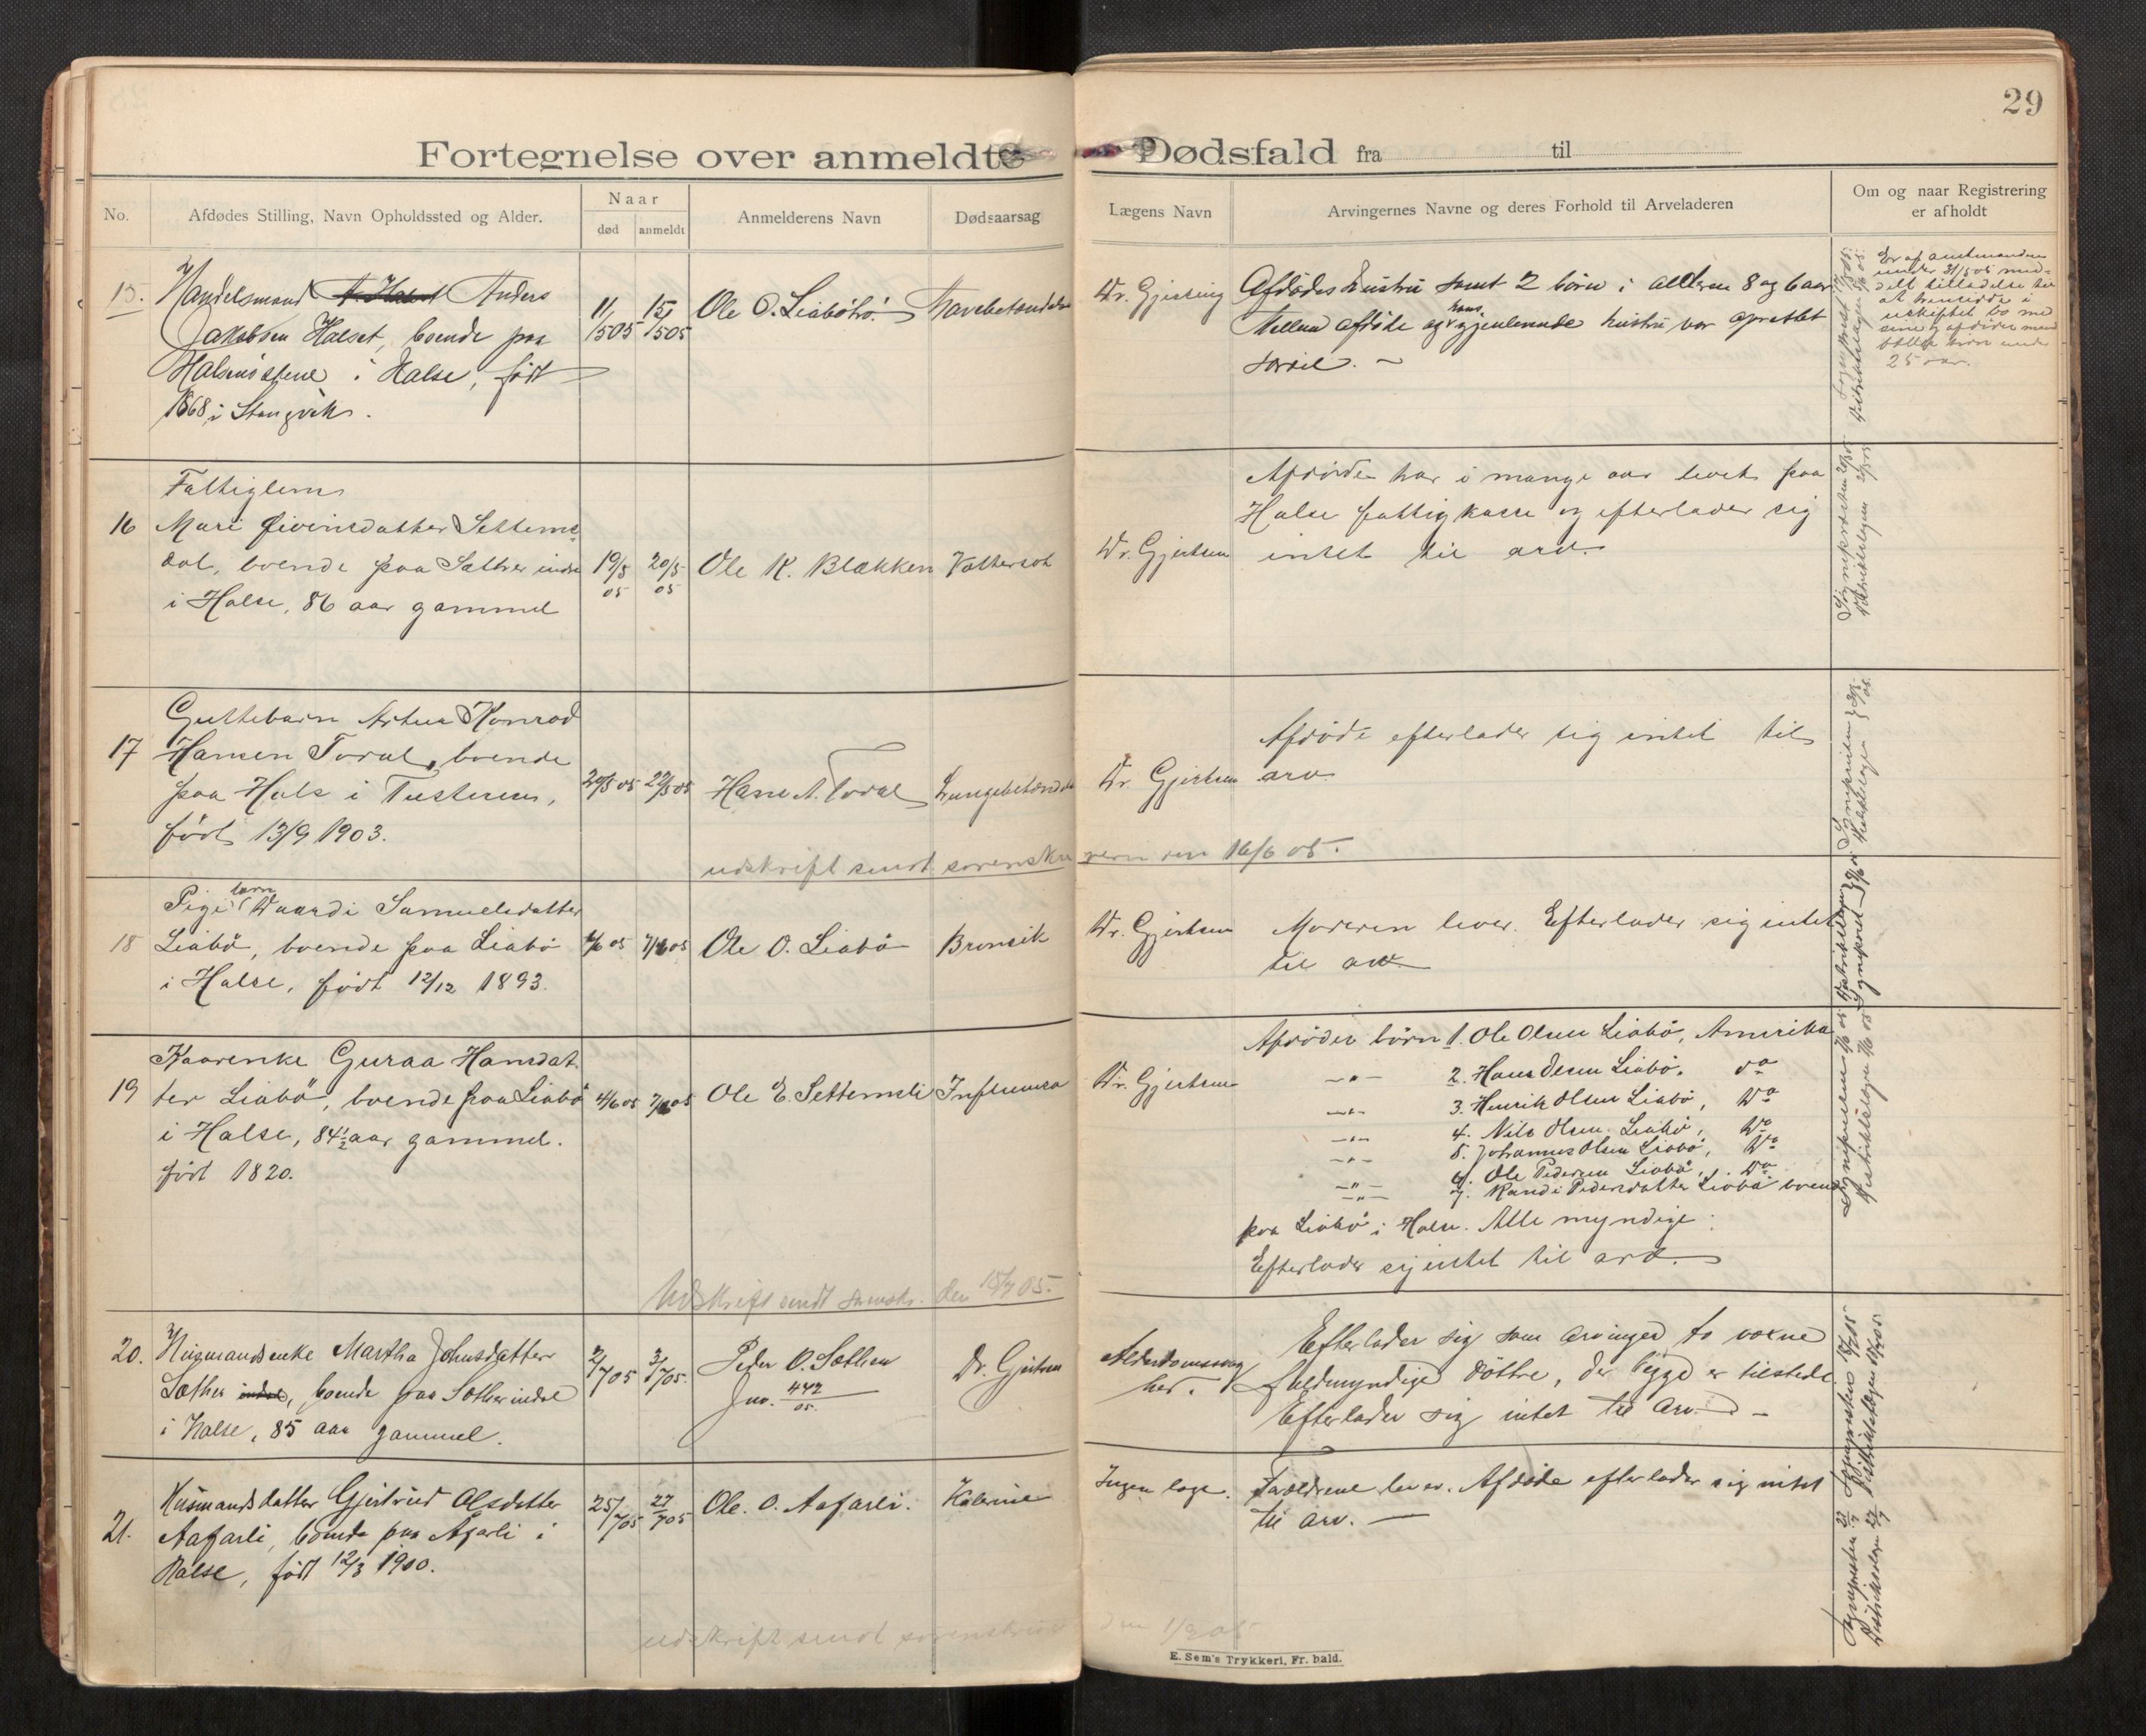 29
Fortegnelse over anmeldte Dødsfald fra til
No.
Afdødes Stilling, Navn Opholdssted og Alder.
Naar
død
anmeldt
Anmelderens Navn
Dødsaarsag
Lægens Navn
Arvingernes Navne og deres Forhold til Arveladeren
Om og naar Registrering
er afholdt
15.
Handelsmand Anders
Jakobsen Halset, boende paa
i Halse, født
1868 i Stangvik.
11/5 05
15/5 05
Ole O. Liabø
Dr. Gjertsen
Afdødes hustru samt 2 børn i alderen 8 og 6 aar
Mellem afdøde og hans gjenlevende hustru var oprettet
Er af amtmanden
under 31/5 05 med-
delt tilladelse til
at hensidde i
uskiftet bo med
sine og afdødes med
børn under
25 aar.
16
Fattiglem
Mari Eivindsdatter Settems-
dal, boende paa Sæther indre
i Halse, 86 aar gammel
19/5 05
20/5 05
Ole K. Blekken
Vattersot
Dr. Gjertsen
Afdøde har i mange aar levet paa
Halse fattigkasse og efterlader sig
intet til arv.
17
Guttebarn Artur Konrad
Hansen Torvl, boende
paa Hals i Tusteren,
født 13/9 1903.
20/5 05
22/5 05
Hans A.
Lungebetændelse
Dr. Gjertsen
Afdøde efterlader sig intet til
arv
udskrift sendt sorenskriveren den 16/6 05.
18
Pigebarn Samuelsdatter
Liabø, boende paa Liabø
i Halse, født 12/12 1893.
7/6 05
Ole O. Liabø
Dr. Gjertsen
Moderen lever. Efterlader sig intet
til arv
19
Kaarenke Guraa Hansdat-
ter Liabø, boende paa Liabø
i Halse, 84½ aar gammel.
født 1820.
4/6 05
7/6 05
Ole E. Settemsli
Influensa
Dr. Gjertsen
Afdødes børn 1. Ole Olsen Liabø, Amerika
-"- 2. Hans Olsen Liabø, do
-"- 3. Henrik Olsen Liabø, Do
-"- 4. Nils Olsen Liabø, Do
-"- 5. Johannes Olsen Liabø, Do
-"- 6. Ole Pedersen Liabø, Do
-"- 7. Randi Pedersdatter Liabø boende
paa Liabø i Halse. Alle myndige.
Efterlader sig intet til arv.
Udskrift sendt sorenskr. den 15/7 05.
20.
Husmandsenke Martha Johnsdatter
Sæther indre, boende paa Sæther indre
i Halse, 85 aar gammel.
2/7 05
3/7 05.
Peder O. Sæther
Jno. 442/05
Dr. Gjertsen
Alderdomssvag
hed.
Efterlader sig som arvinger to voxne
fuldmyndige døttre, der begge er tilstede.
Efterlader sig intet til arv.
21.
Husmandsdatter Gjertrud Olsdatter
Aafarli, boende paa Aafarli i
Halse, født 12/3 1900.
25/7 05
27/7 05
Ole. O. Aafarli.
Kolerine
Ingen læge.
Forældrene lever. Afdøde efterlader sig intet
til arv.
udskrift sendt sorenskriveren den 1/9 05
E. Sem's Trykkeri, Fr.hald.